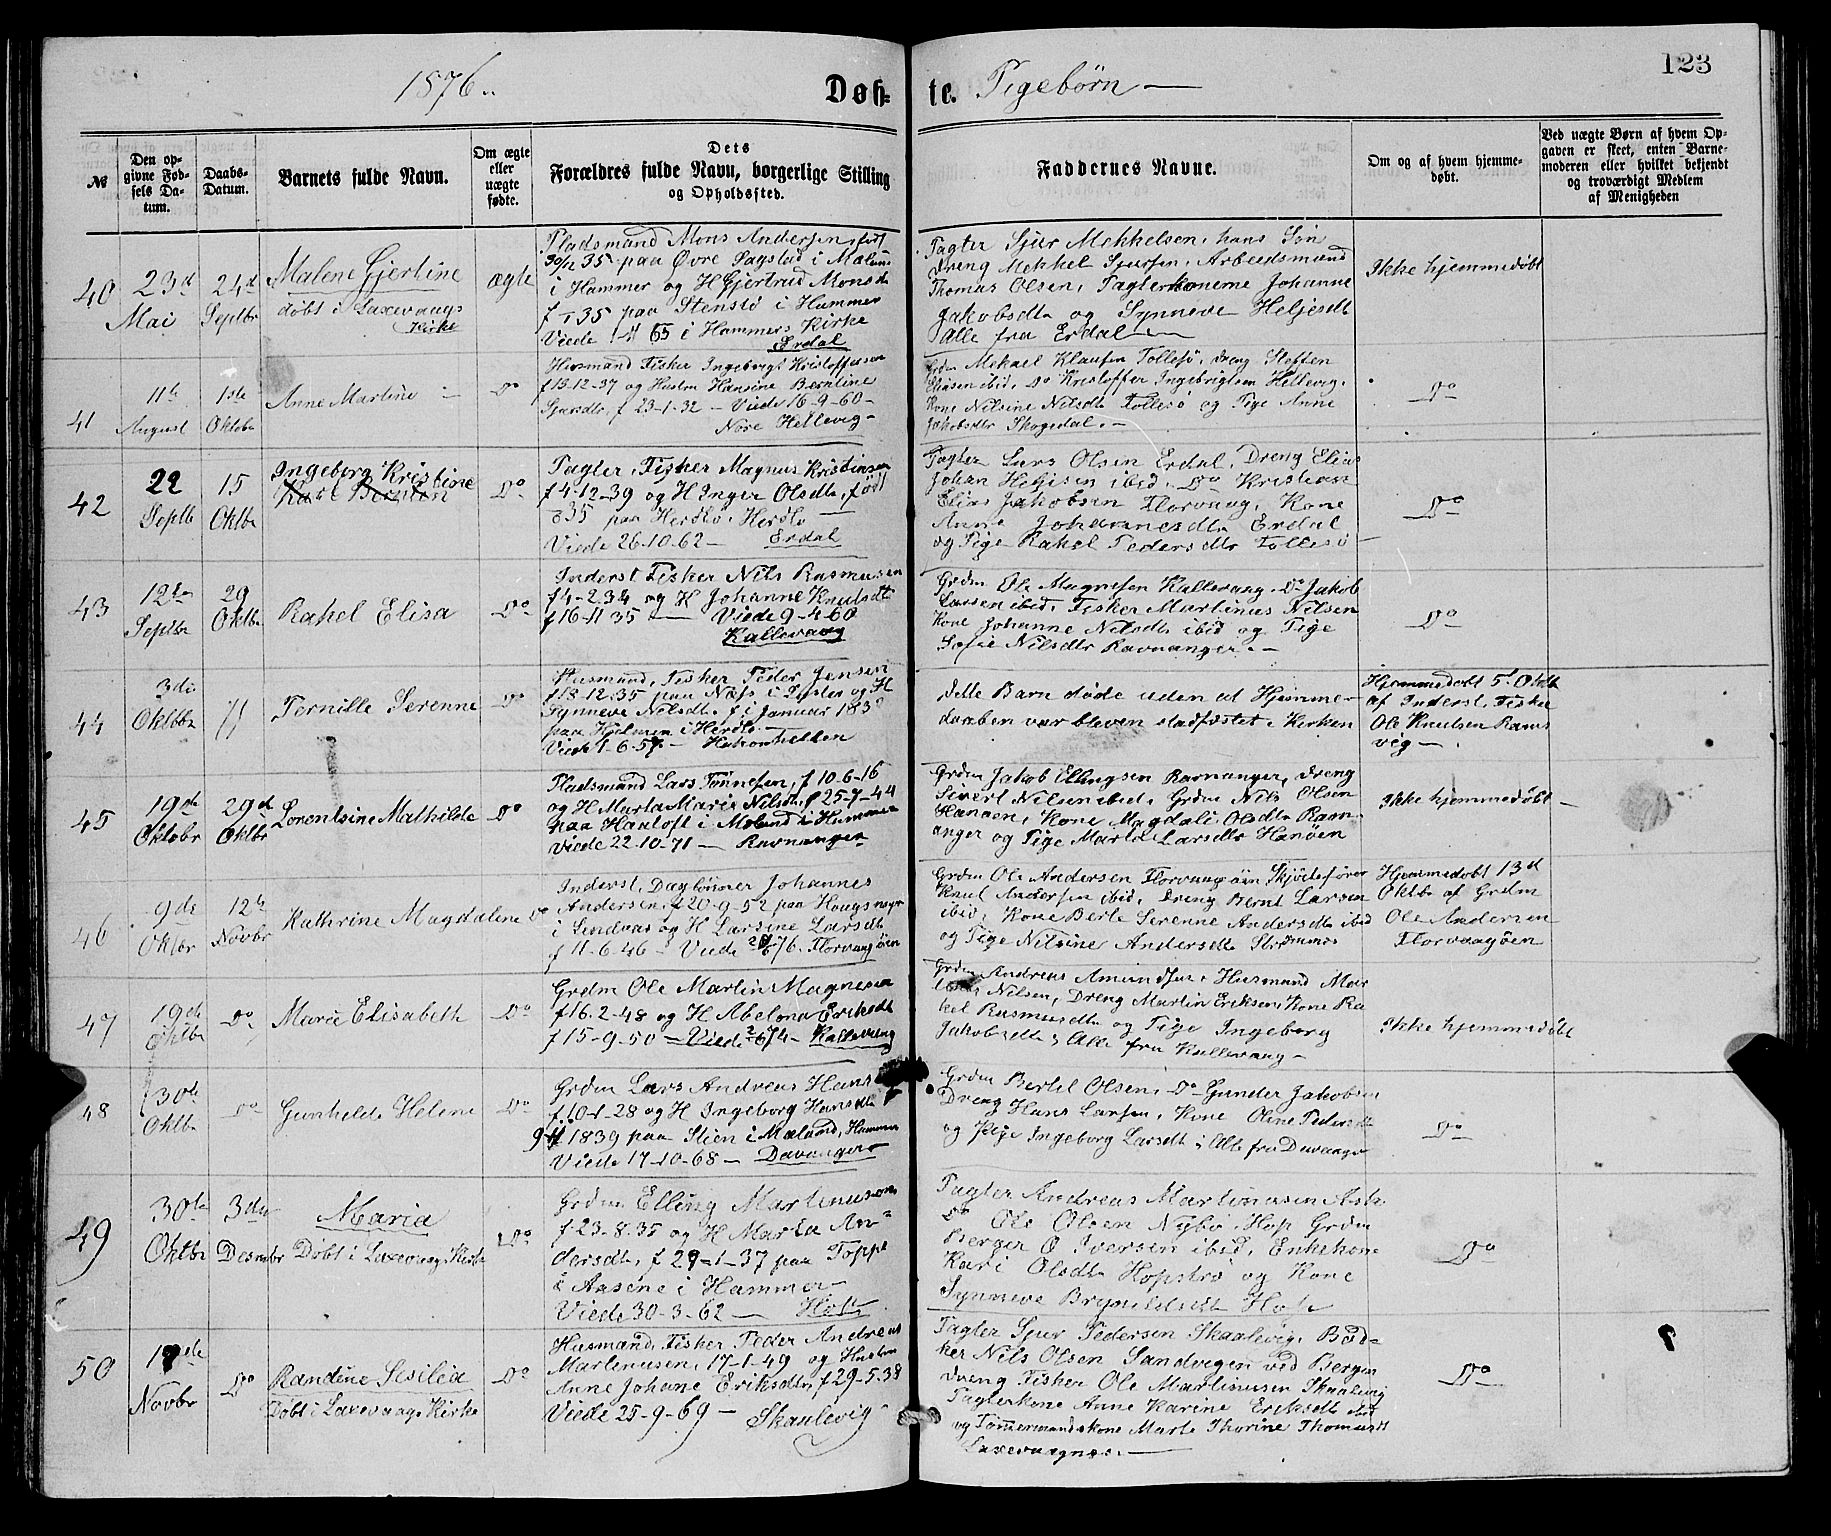 1876.
Døb-
te. Pigebørn
123
№
Den op-
givne Fød-
sels Da-
tum.
Daabs-
Datum.
Barnets fulde Navn.
Om ægte
eller
uægte
fødte.
Dets
Forældres fulde Navn, borgerlige Stilling
og Opholdssted.
Faddernes Navne.
Om og af hvem hjemme-
døbt.
Ved uægte Børn af hvem Op-
gaven er skeet, enten Barne-
moderen eller hvilket bekjendt
og troværdigt Medlem
af Menigheden
40
23d
Mai
24d
Septbr
Malene Gjertine
døbt i Laxevaags
Kirke
ægte
Pladsmand Mons Andersen, født
30/12 35 paa Øvre Sagstad i Mæland
i Hammer og H Gjertrud Monsdt
f 35 paa Stenstø i Hammer
Viede 65 i Hammers Kirke
Erdal
Pagter Sjur Mekkelsen, hans Søn
Dreng Mekkel Sjursen, Arbeidsmand
Thomas Olsen, Pagterkonerne Johanne
Jakobsdtr og Synneve Heljesdtr
Alle fra Erdal
Ikke hjemmedøbt
41
11te
August
1ste
Oktbr
Anne Martine
Do
Husmand Fisker Ingebrigt Kristoffersen
f 13-12-37 og Hustru Hansine Berntine
Sjursdtr, f 23-1-32 - Viede 16-9-60-
Nore Hellevig-
Grdm Mekael Klausen Follesø, Dreng Steffen
Eliasen ibid, Do Kristoffer Ingebrigtsen Hellevig.
Kone Nilsine Nilsdtr Follesø og Pige Anne
Jakobsdtr Skogedal.-
Do
42
22
Septb
15
Oktbr
Ingeborg Kristine
Do
Pagter, Fisker Magnus Kristinsen
f 4-12-39 og H Inger Olsdtr, født
835 paa Herdlø, Herdlo
Viede 26-10-62- Erdal
Pagter Lars Olsen Erdal, Dreng Elias
Johan Heljesen ibid. Do Kristian
Elias Jakobsen Florvaag, Kone
Anne Johannesdtr Erdal
og Pige Rakel Pedersdtr Follesø
Do
43
12te
Septbr
29
Oktbr
Rakel Elisa
Do
Inderst Fisker Nils Rasmusen
f 4-2-34 og H Johanne Knutsdtr
f 16-11 35 - Viede 9-4-60
Kallevaag
Grdm Ole Magnesen Kallevaag, Do Jakob
Larsen ibid, Fisker Martinus Nilsen
Kone Johanne Nilsdtr ibid og Pige
Sofie Nilsdtr Ravnanger.-
Do
44
3die
Oktbbr
Pernille Serenne
Do
Husmand, Fisker Peder Jensen
f 13-12-35 paa Næss i Lyster og H
Synneve Nilsdtr, f i Januar 183
paa Hjelmen i Herdlø.
Viede 1-6-57- Hakonshellen
Dette Barn døde uden at Hjemme-
daaben var bleven stadfæstet i Kirken
Hjemmedøbt 5. Oktb
af Inderst, Fisker
Ole Knutsen Rams
vig-.
45
19de
Oktobr
29d
Oktbr
Lorentsine Mathilde
Do
Pladsmand Lars Tønnesen, f 10-6-16
og H Marta Marie Nilsdtr, f 25-7-44
paa Haaloft i Mæland i Hammer
Viede 22-10-71- Ravnanger
Grdm Jakob Ellingsen Ravnanger, Dreng
Sivert Nilsen ibid, Grdm Nils Olsen
Hanøen, Kone Magdali Olsdtr Ravn-
anger og Pige Marta Larsdtr Hanøen
Ikke hjemmedøbt -
46
9de
Oktbr
12te
Novbr
Kathrine Magdalene
Do
Inderst, Dagløner Johannes
Andersen, f 20-9-52 paa Haugsmyr
i Søndvas og H Larsine Larsdtr
f 11-6-46- Viede 76. Florvaagøen
Grdm Ole Andersen Florvaagøen Skjøitefører
Knut Andersen ibid, Dreng Bernt Larsen
ibid, Kone Berte Serenne Andersdtr ibid
og Pige Nilsine Andersdtr Strømmes
Hjemmedøbt 13d
Oktbr af Grdm
Ole Andersen
Florvaagøen
47
19de
Oktbr
Do
Marie Elisabeth
Do
Grdm Ole Martin Magnesen
f 16-2-48 og H Abelone Eriksdtr
f 15-9-50- Viede 74- Kallevaag
Grdm Andreas Amundsen, Husmand Mar
Nilsen, Dreng Martin Eriksen, Kone Ra
kel Rasmusdtr og Pige Ingeborg
Jakobsdtr, Alle fra Kallevaag-
Ikke hjemmedøbt
48
30te
Oktbr
Do
Gunhilde Helene
Do
Grdm Lars Andreas Hans
f 10-1-28 og H Ingeborg Hansdtr
9/11 1839 paa Stien i Mæland, Hammer
Viede 17-10-68- Davanger
Grdm Bertel Olsen, Do Gunder Jakobsen
Dreng Hans Larsen, Kone Oline Pedersdtr
og Pige Ingeborg Larsdtr, Alle fra Davanger
Do
49
30te
Oktbr
3die
Desmbr
Maria
Døbt i Laxevaags Kirke
Do
Grdm Elling Martinusen
f 23-8-35 og H Marta An-
dersdtr, f 29-1-37 paa Toppe
i Aasene i Hammer-
Viede 30-3-62- Hop
Pagter Andreas Martinusen Ask
Do Ole Olsen Nybø, Hop Grdm
Berger O Iversen ibid, Enkekone
Kari Olsdtr Hopstrø og Kone
Synneve Brynildsdtr Hop
Do
50
1de
Novbr
Do
Randine Sesilia
Døbt i Laxevaags Kirke
Do
Husmand, Fisker Peder Andreas
Martinusen, 17-1-49 og Hustru
Anne Johane Eriksdtr, f 29-5-38
Viede 25-9-69- Skaalevig
Pagter Sjur Pedersen Skaalevig, Bød-
ker Nils Olsen Sandvigen ved Bergen
Dreng Fisker Ole Martinusen Skaalevig
Pagterkone Anne Karine Eriksdtr ibid
og Tømmermandskone Marte Thorine Thomasdtr
Laxevaagnes.-
Do